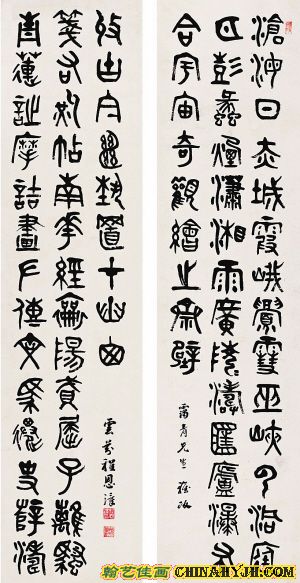 滄海日赤城霞峨嵋雪巫峽雲洞庭
月彭蠡煙瀟湘雨廣陵濤匡廬瀑布
合宇宙奇觀繪齋壁
青蓮詩摩詰畫左傳文遷史薛濤
箋右軍帖南華經賦屈子離騷
收古今絕藝置山窗
雲芬程恩澤
翰艺佳画 CHINAHYJH.COM